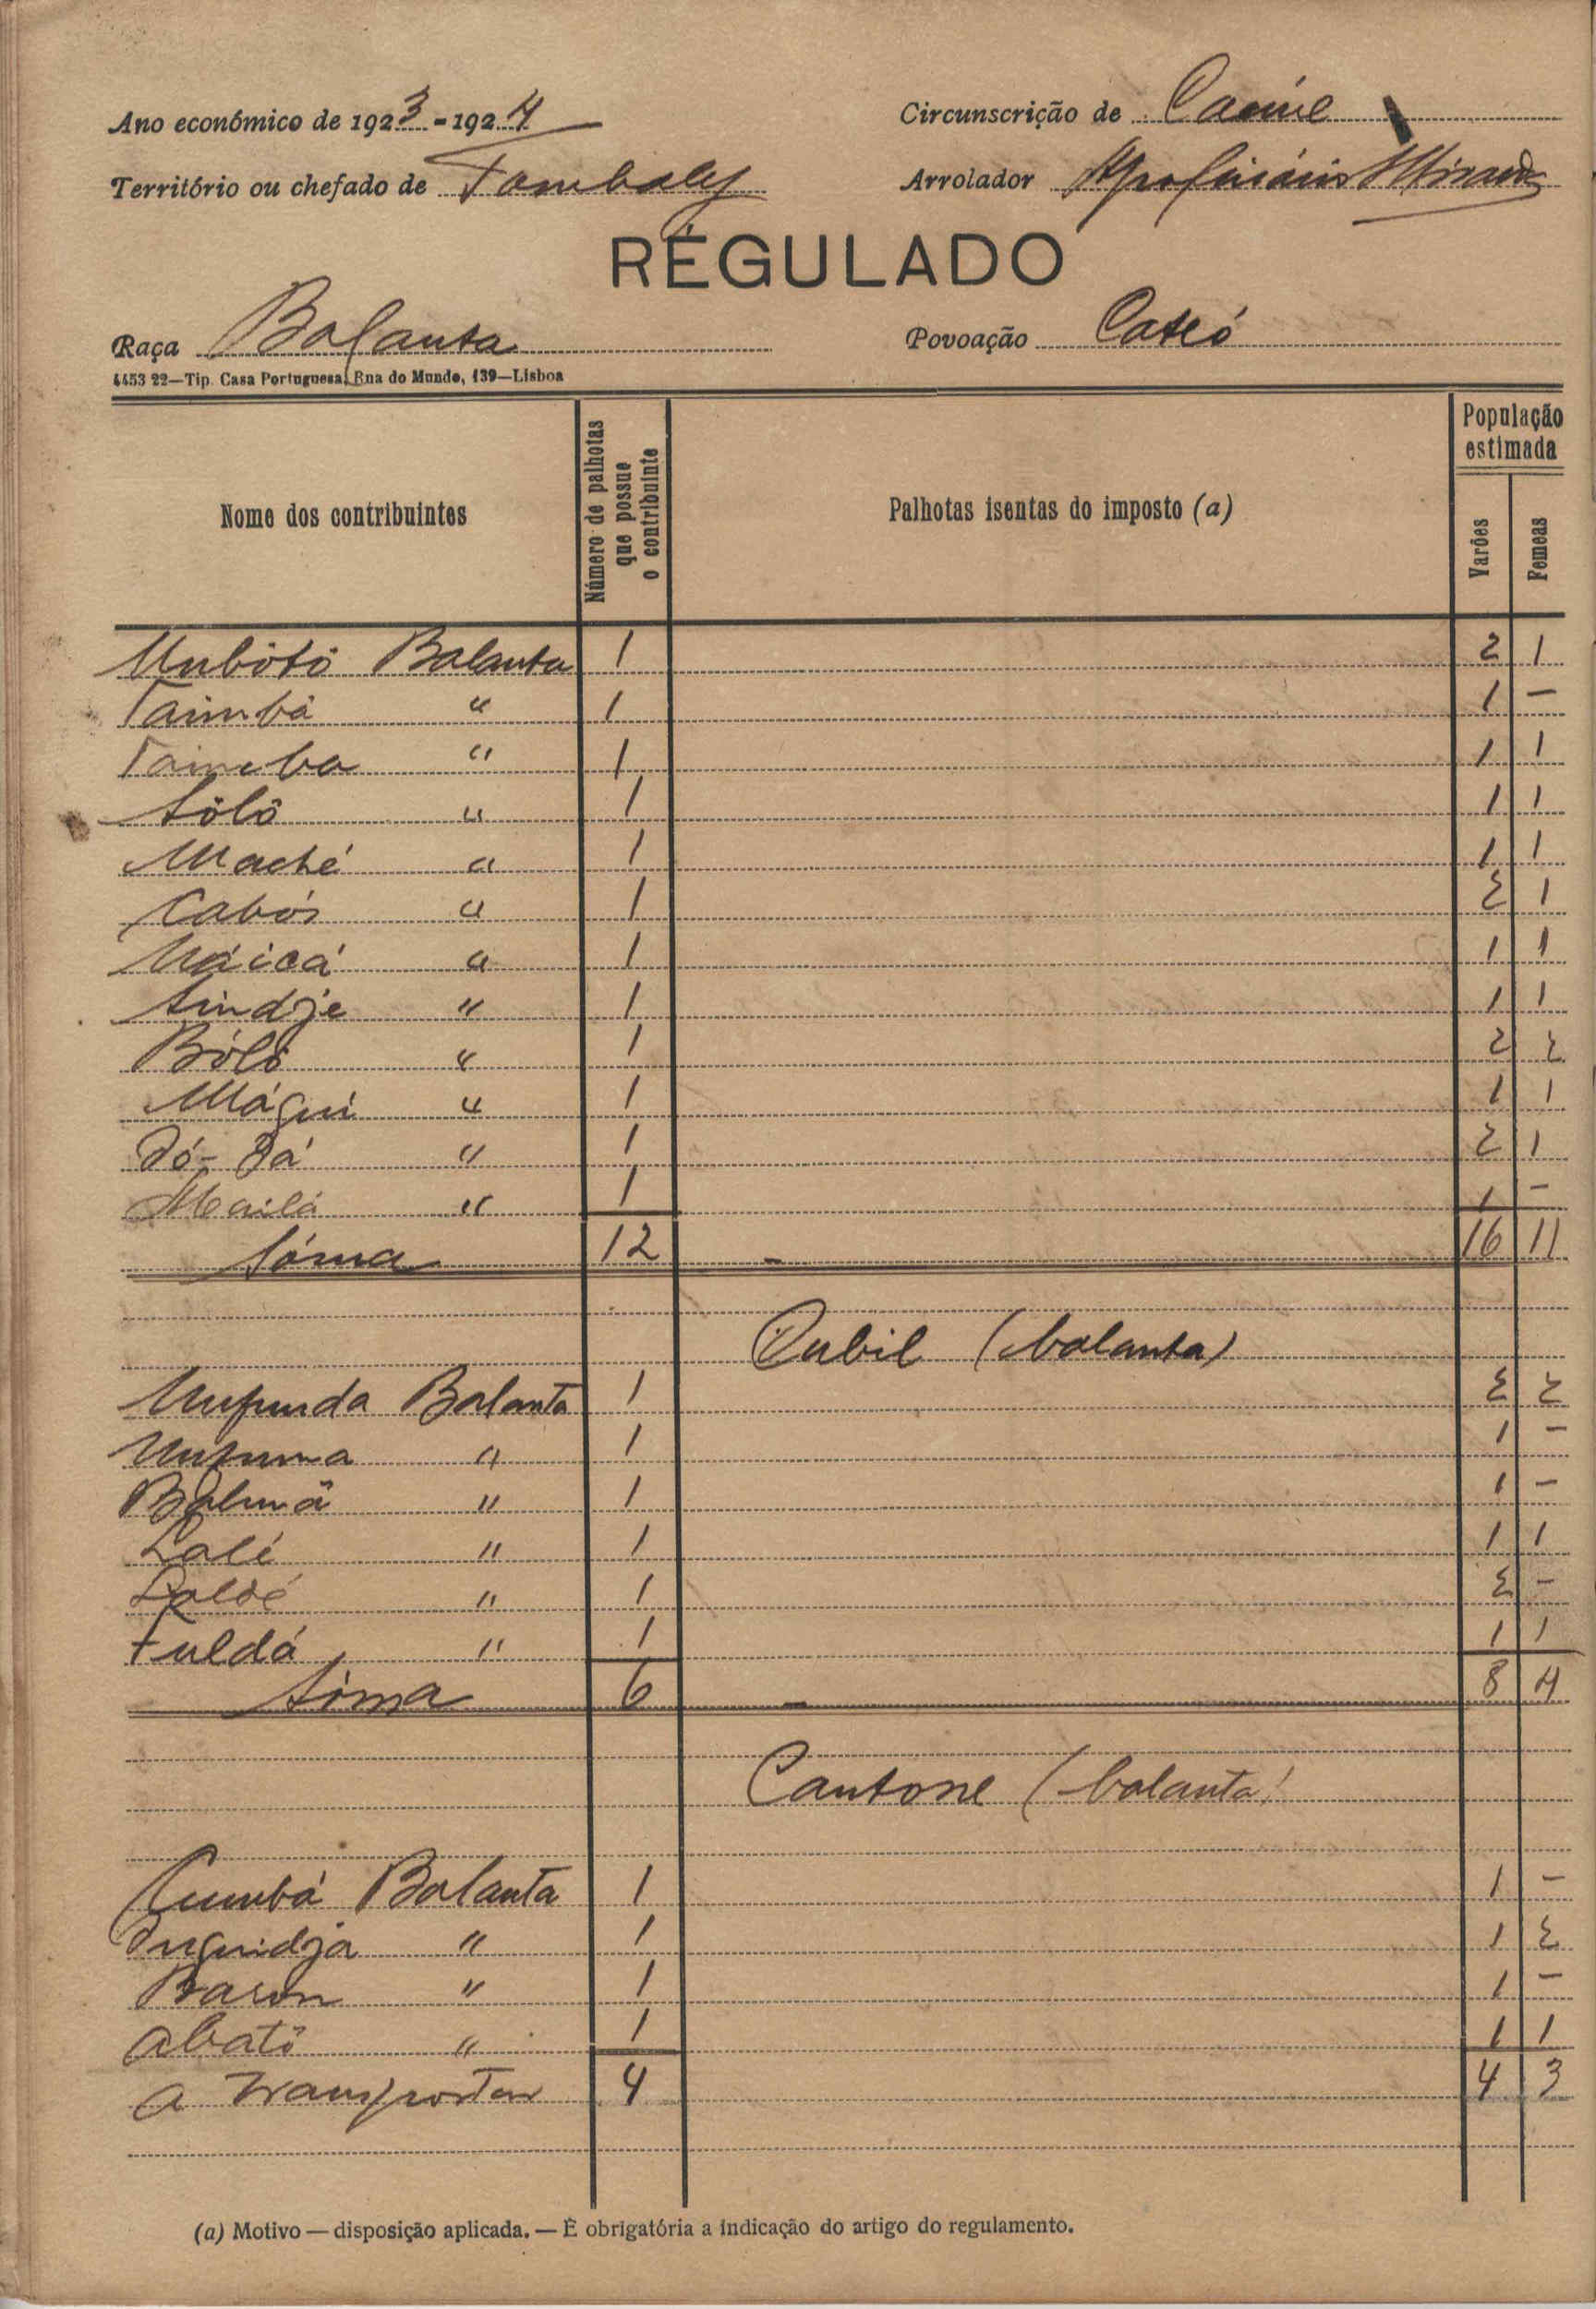 Ano económico de 1923-1924
Circunscrição de Cacine
Território ou chefado de Tombaly
Arrolador Miranda
RÉGULADO
Raça Balanta
Povoação Catió
4453 22—Tip. Casa Portuguesa, Rua do Mundo, 139—Lisboa
Nome dos contribuintes
Número de palhotas que possue o contribuinte
Palhotas isentas do imposto (a)
População estimada
Varões
Femeas
Unbôtô Balanta 1 2 1
Taimbá " 1 1 —
Taimba " 1 1 1
Sôlô " 1 1 1
Maché " 1 1 1
Cabói " 1 2 1
Uáicá " 1 1 1
Sindje " 1 1 1
Bólô " 1 2 2
Mágui " 1 1 1
Dó- " 1 2 1
Mailá " 1 1 —
Sóma 12 — 16 11
Cubil (balanta)
Unfunda Balanta 1 2 2
" 1 1 —
" 1 1 —
Lalé " 1 1 1
" 1 2 —
Fuldá " 1 1 1
Sóma 6 — 8 4
Cantone (balanta)
Cumbá Balanta 1 1 —
Inguidja " 1 1 2
" 1 1 —
Abatô " 1 1 1
A transportar 4 4 3
(a) Motivo — disposição aplicada. — É obrigatória a indicação do artigo do regulamento.